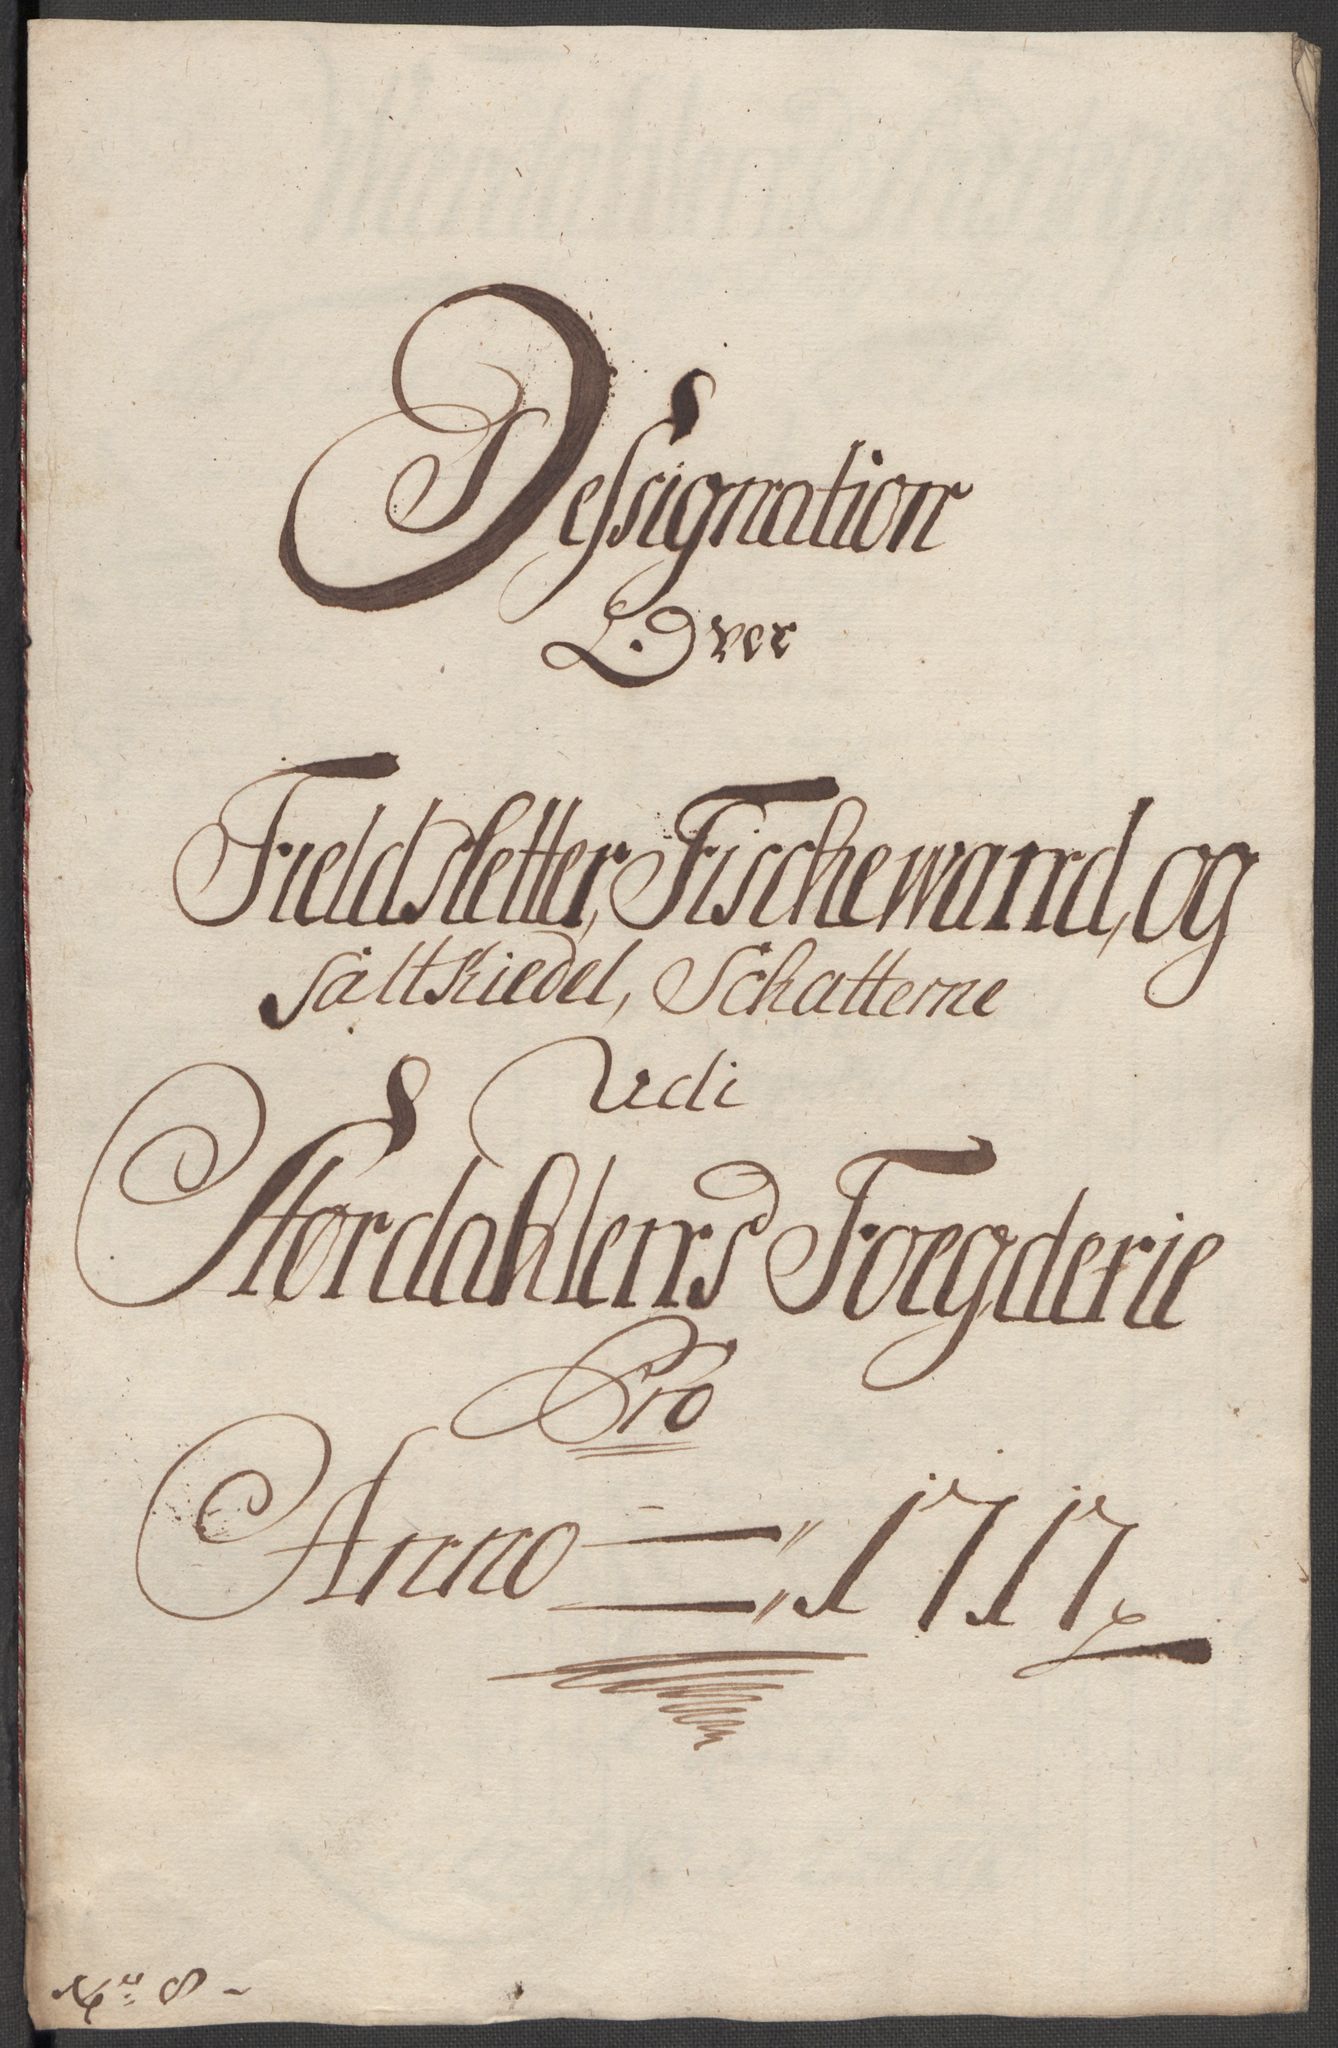 Dessignation
Over
Fieldsletter, Fischewand, og
saltkiedel, Schatterne
Udi
Størdahlens Foegderie
Pro
Anno 1717
No 8